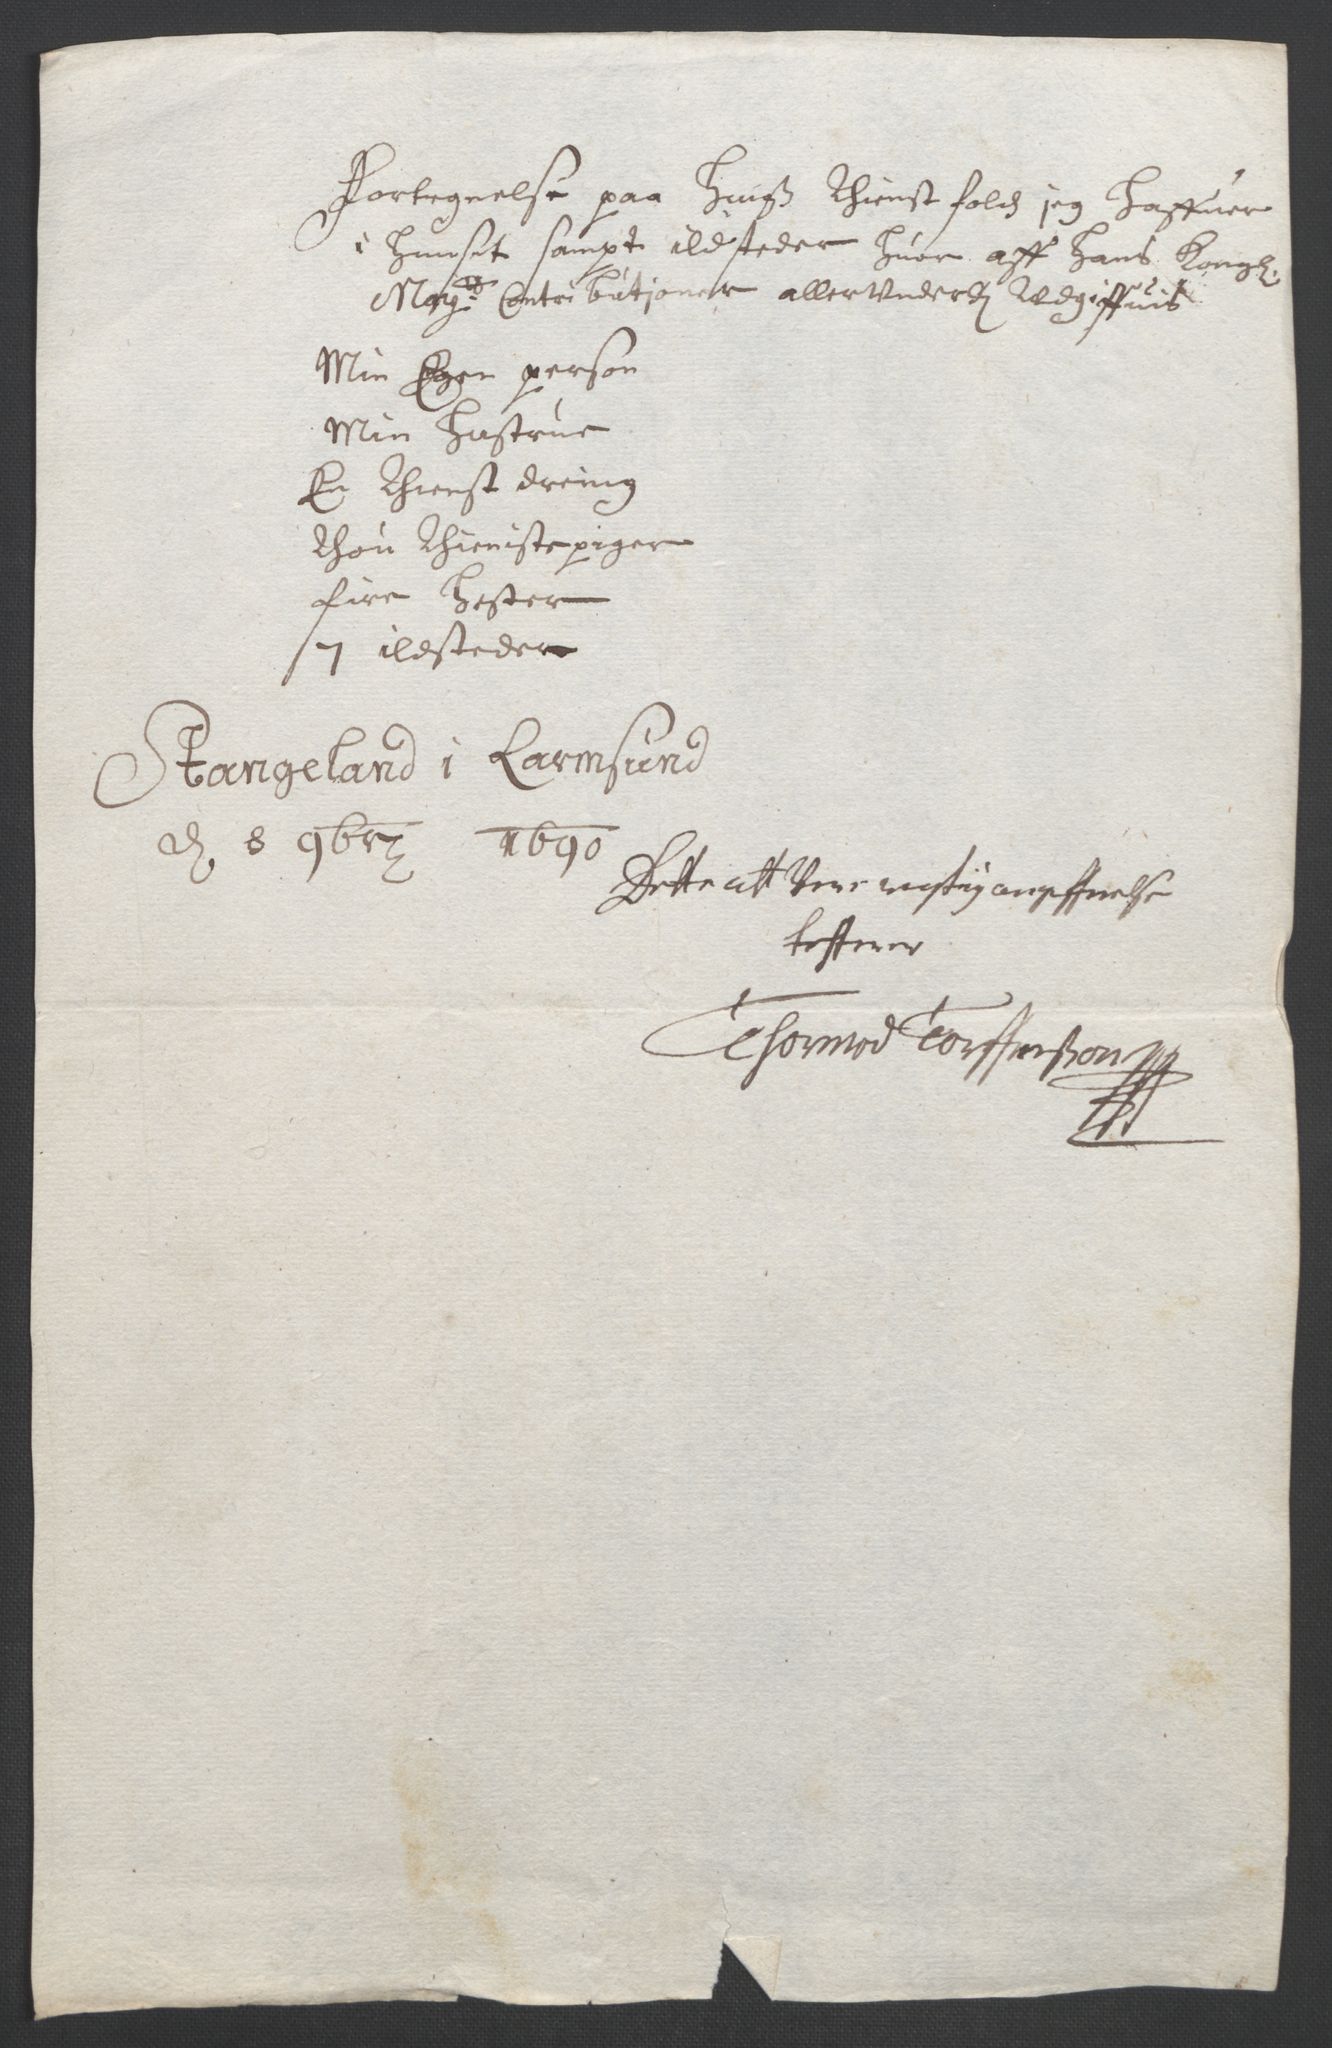 Fortegnelse paa huiß thienst folch jeg haffuer
i huuset sampt ildsteder huor aff hans Kongl:
Mayts Contributjoner allerunderd: udgiffuis
Min Egen person
Min hustrue
En thienst dreing
thou thieniste piger
fire hester
7 ildsteder
Stangeland i Carmsund
d 8 9brz 1690
Dette att Vere rigtig angiffuelse
testerer
Thormod Torffueßon